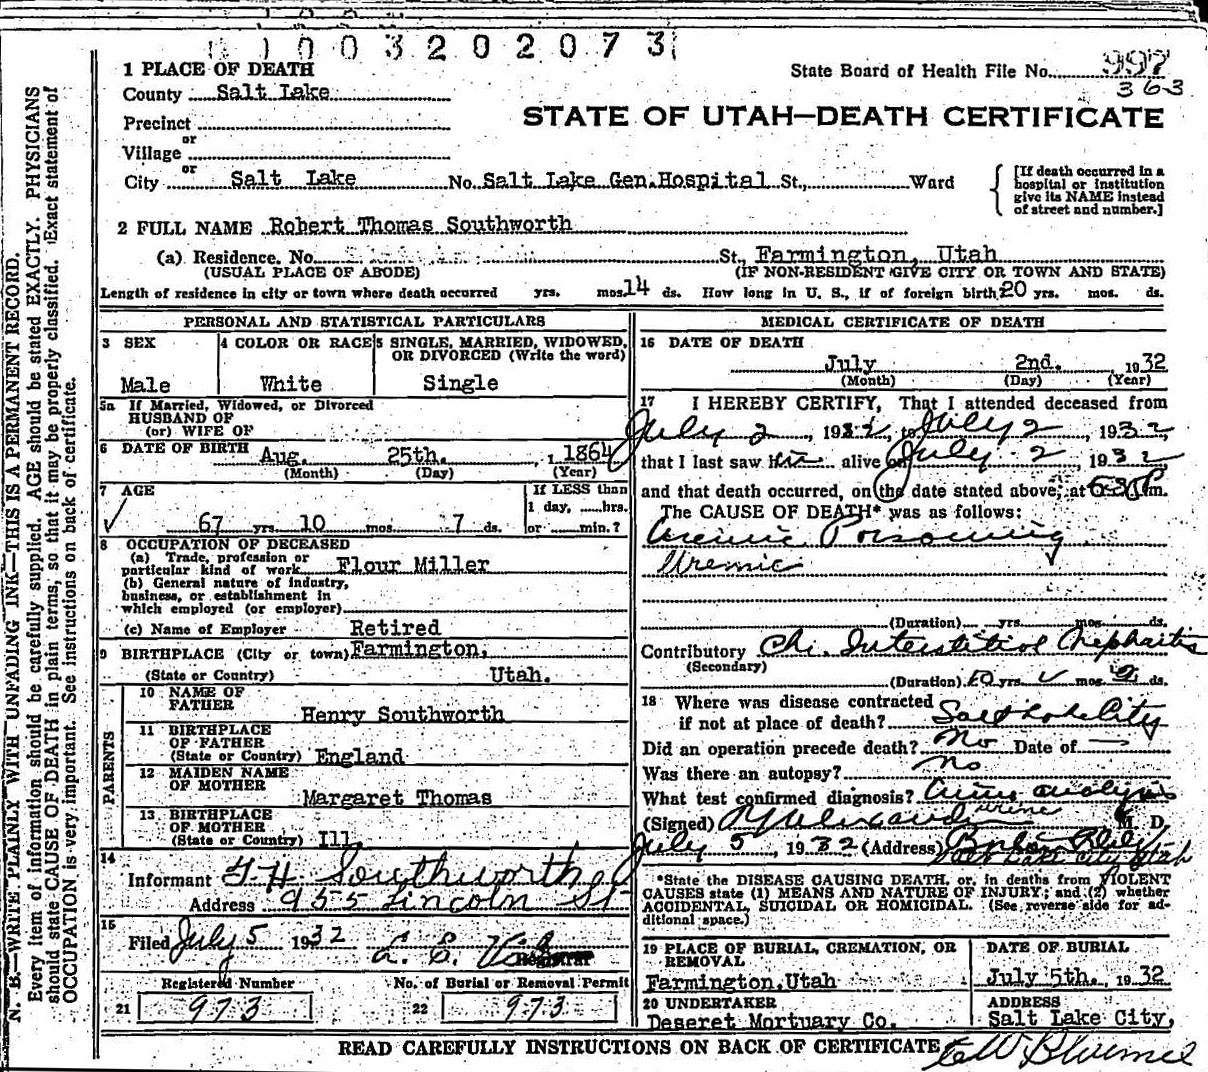 1003202073
1 PLACE OF DEATH
State Board of Health File No. 997
363
County Salt Lake
STATE OF UTAH—DEATH CERTIFICATE
Precinct
or
Village
or
City Salt Lake No. Salt Lake Gen.Hospital St., Ward
[If death occurred in a
hospital or institution
give its NAME instead
of street and number.]
2 FULL NAME Robert Thomas Southworth
(a) Residence. No. St., Farmington, Utah
(USUAL PLACE OF ABODE) (IF NON-RESIDENT GIVE CITY OR TOWN AND STATE)
Length of residence in city or town where death occurred yrs. mos. 14 ds. How long in U. S., if of foreign birth 20 yrs. mos. ds.
PERSONAL AND STATISTICAL PARTICULARS
3 SEX 4 COLOR OR RACE 5 SINGLE, MARRIED, WIDOWED,
OR DIVORCED (Write the word)
Male White Single
5a If Married, Widowed, or Divorced
HUSBAND OF
(or) WIFE OF
6 DATE OF BIRTH Aug. 25th. , 1 1864
(Month) (Day) (Year)
7 AGE If LESS than
1 day, ......hrs.
67 yrs. 10 mos. 7 ds. or ......min.?
8 OCCUPATION OF DECEASED
(a) Trade, profession or
particular kind of work Flour Miller
(b) General nature of industry,
business, or establishment in
which employed (or employer)
(c) Name of Employer Retired
9 BIRTHPLACE (City or town) Farmington,
(State or Country) Utah.
PARENTS
10 NAME OF
FATHER
Henry Southworth
11 BIRTHPLACE
OF FATHER
(State or Country) England
12 MAIDEN NAME
OF MOTHER
Margaret Thomas
13 BIRTHPLACE
OF MOTHER
(State or Country) Ill.
14
Informant Southworth
Address 955 Lincoln St
15
Filed July 5 1932
Registrar
Registered Number No. of Burial or Removal Permit
21 973 22 973
MEDICAL CERTIFICATE OF DEATH
16 DATE OF DEATH
July 2nd. 1932
(Month) (Day) (Year)
17 I HEREBY CERTIFY, That I attended deceased from
July 2, 1932, to July 2, 1932,
that I last saw him alive on July 2, 1932
and that death occurred, on the date stated above, at m.
The CAUSE OF DEATH* was as follows:
Uremic Poisoning
Uremic
(Duration) yrs. mos. ds.
Contributory Chr. Interstitial Nephritis
(Secondary)
(Duration) 10 yrs. mos. ds.
18 Where was disease contracted
if not at place of death? Salt Lake City
Did an operation precede death? No Date of —
Was there an autopsy? no
What test confirmed diagnosis? Urine analysis
urine
(Signed) M. D.
July 5, 1932 (Address)
Salt Lake City Utah
*State the DISEASE CAUSING DEATH, or, in deaths from VIOLENT
CAUSES state (1) MEANS AND NATURE OF INJURY; and (2) whether
ACCIDENTAL, SUICIDAL OR HOMICIDAL. (See reverse side for ad-
ditional space.)
19 PLACE OF BURIAL, CREMATION, OR
REMOVAL
DATE OF BURIAL
Farmington,Utah July 5th. 1932
20 UNDERTAKER ADDRESS
Deseret Mortuary Co. Salt Lake City,
READ CAREFULLY INSTRUCTIONS ON BACK OF CERTIFICATE
N. B.—WRITE PLAINLY WITH UNFADING INK—THIS IS A PERMANENT RECORD.
Every item of information should be carefully supplied. AGE should be stated EXACTLY. PHYSICIANS
should state CAUSE OF DEATH in plain terms, so that it may be properly classified. Exact statement of
OCCUPATION is very important. See instructions on back of certificate.